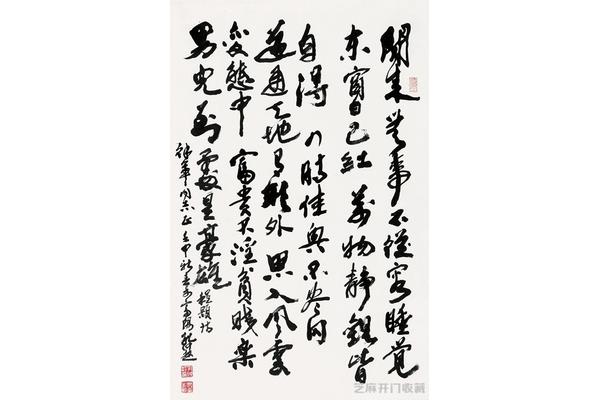 閒来無事不從容睡觉
东窗日已红萬物静觀皆
自得四時佳興與人同
道通天地有形外思入风雲
变態中富貴不淫貧賤樂
男兒到此是豪雄程颢诗
同志正壬申秋
芝麻开门收藏